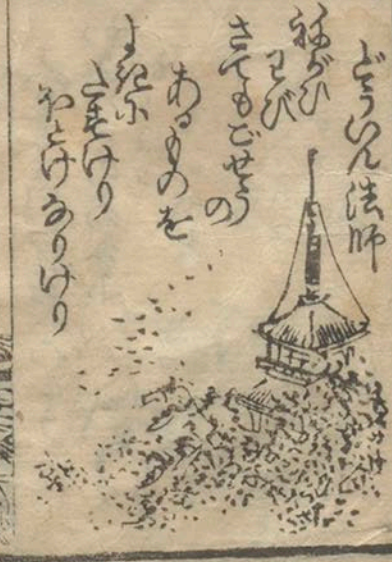 どういん法師
ねがひ
わび
さてもごせう
の
あるものを
よきに
ほとけなりけり